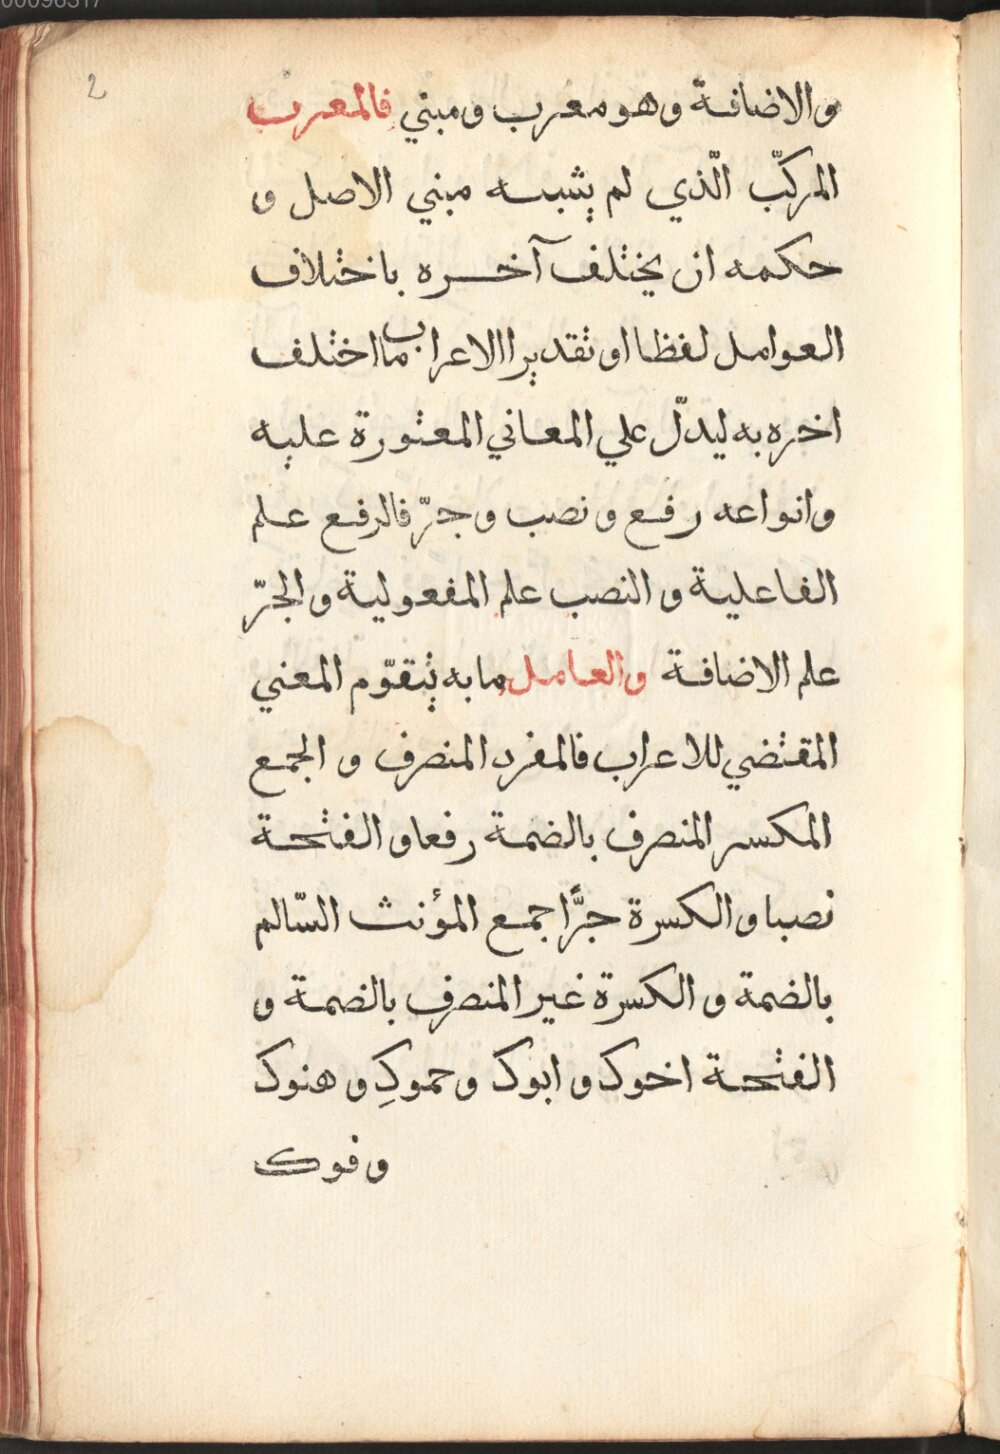 00096317
2
والاضافة وهو معرب ومبني فالمعرب
المركّب الّذي لم يشبه مبني الاصل و
حكمه ان يختلف آخره باختلاف
العوامل لفظا او تقديرا الاعراب ما اختلف
اخره به ليدلّ علي المعاني المعتورة عليه
وانواعه رفع و نصب و جرّ فالرفع علم
الفاعلية و النصب علم المفعولية و الجرّ
علم الاضافة والعامل ما به يتقوّم المعني
المقتضي للاعراب فالمفرد المنصرف و الجمع
المكسر المنصرف بالضمة رفعا و الفتحة
نصبا و الكسرة جرًّا جمع المؤنث السّالم
بالضمة و الكسرة غير المنصرف بالضمة و
الفتحة اخوك و ابوك و حموكِ و هنوك
و فوك